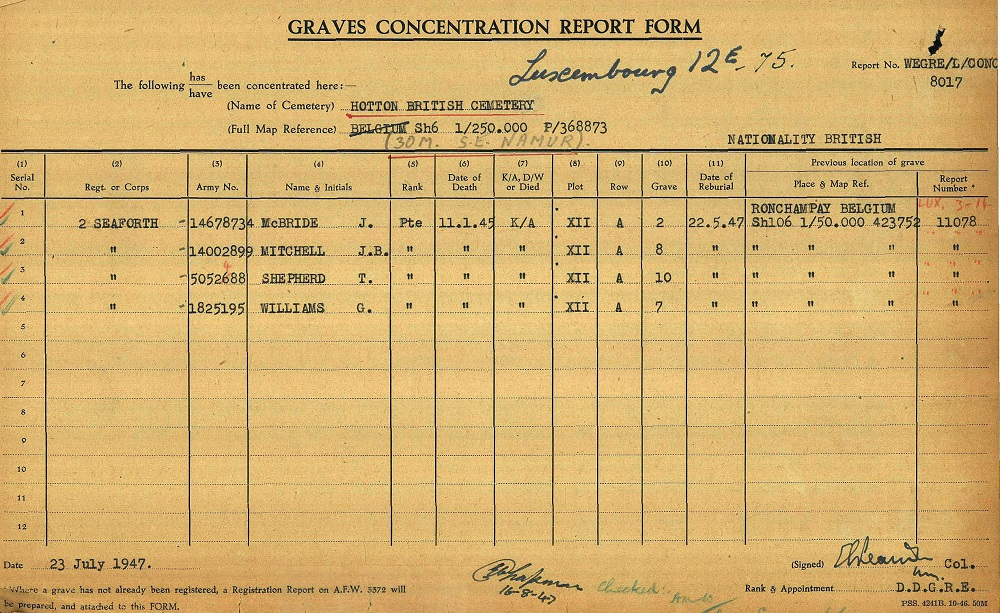 GRAVES CONCENTRATION REPORT FORM
Luxembourg 12E 75.
Report No. WEGRE/L/CONC
8017
The following has/have been concentrated here:—
(Name of Cemetery) HOTTON BRITISH CEMETERY
(Full Map Reference) BELGIUM Sh6 1/250.000 P/368873
(30M. S.E. NAMUR).
NATIONALITY BRITISH
(1) (2) (3) (4) (5) (6) (7) (8) (9) (10) (11) Previous location of grave
Serial No. Regt. or Corps Army No. Name & Initials Rank Date of Death K/A, D/W or Died Plot Row Grave Date of Reburial Place & Map Ref. Report Number
LUX. 3-14
RONCHAMPAY BELGIUM
1 2 SEAFORTH - 14678734 McBRIDE J. Pte 11.1.45 K/A XII A 2 22.5.47 Sh106 1/50.000 423752 11078
2 " - 14002899 MITCHELL J.B. " " " XII A 8 " " " " "
3 " - 5052688 SHEPHERD T. " " " XII A 10 " " " " "
4 " - 1825195 WILLIAMS G. " " " XII A 7 " " " " "
5
6
7
8
9
10
11
12
Date 23 July 1947.
(Signed) Col.
Where a grave has not already been registered, a Registration Report on A.F.W. 3372 will
be prepared, and attached to this FORM.
Chapman
16-8-47
Checked:
Rank & Appointment D.D.G.R.E.
PSS. 4241B. 10-46. 50M